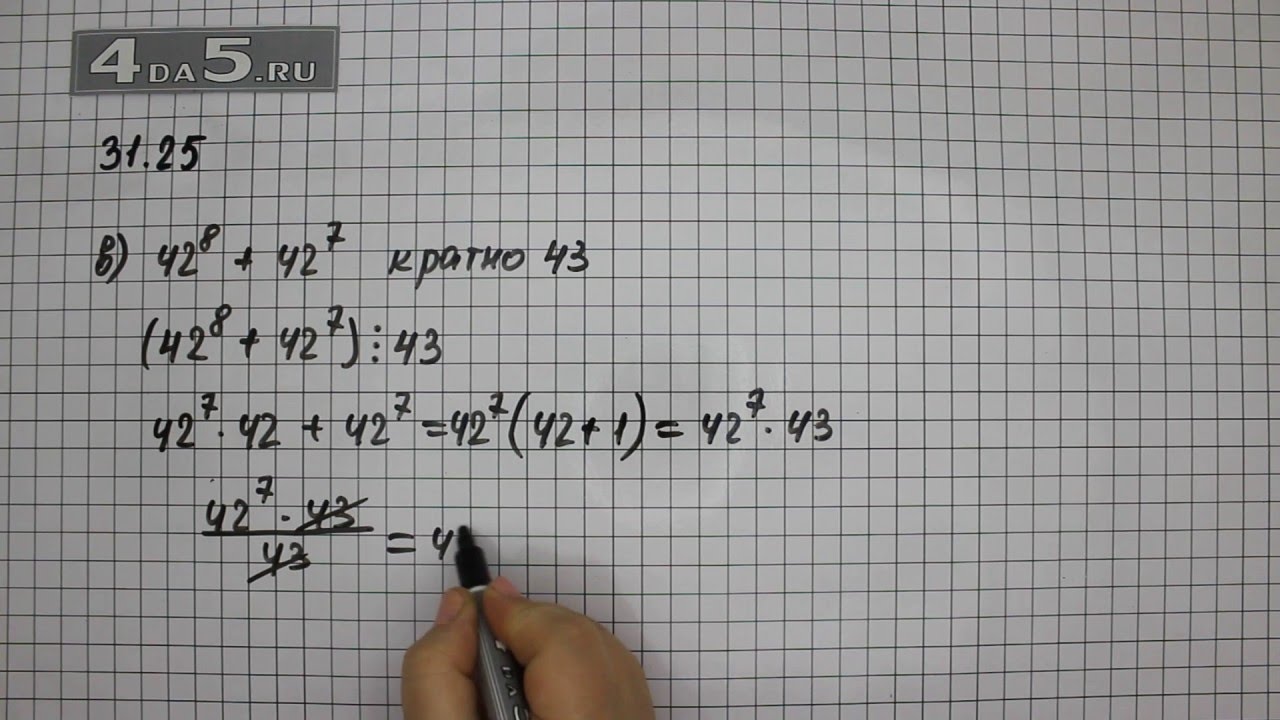 4DA5.RU
31.25
в) 42⁸ + 42⁷ кратно 43
(42⁸ + 42⁷) ⋮ 43
42⁷ · 42 + 42⁷ = 42⁷ (42 + 1) = 42⁷ · 43
42⁷ · 43
43
= 4